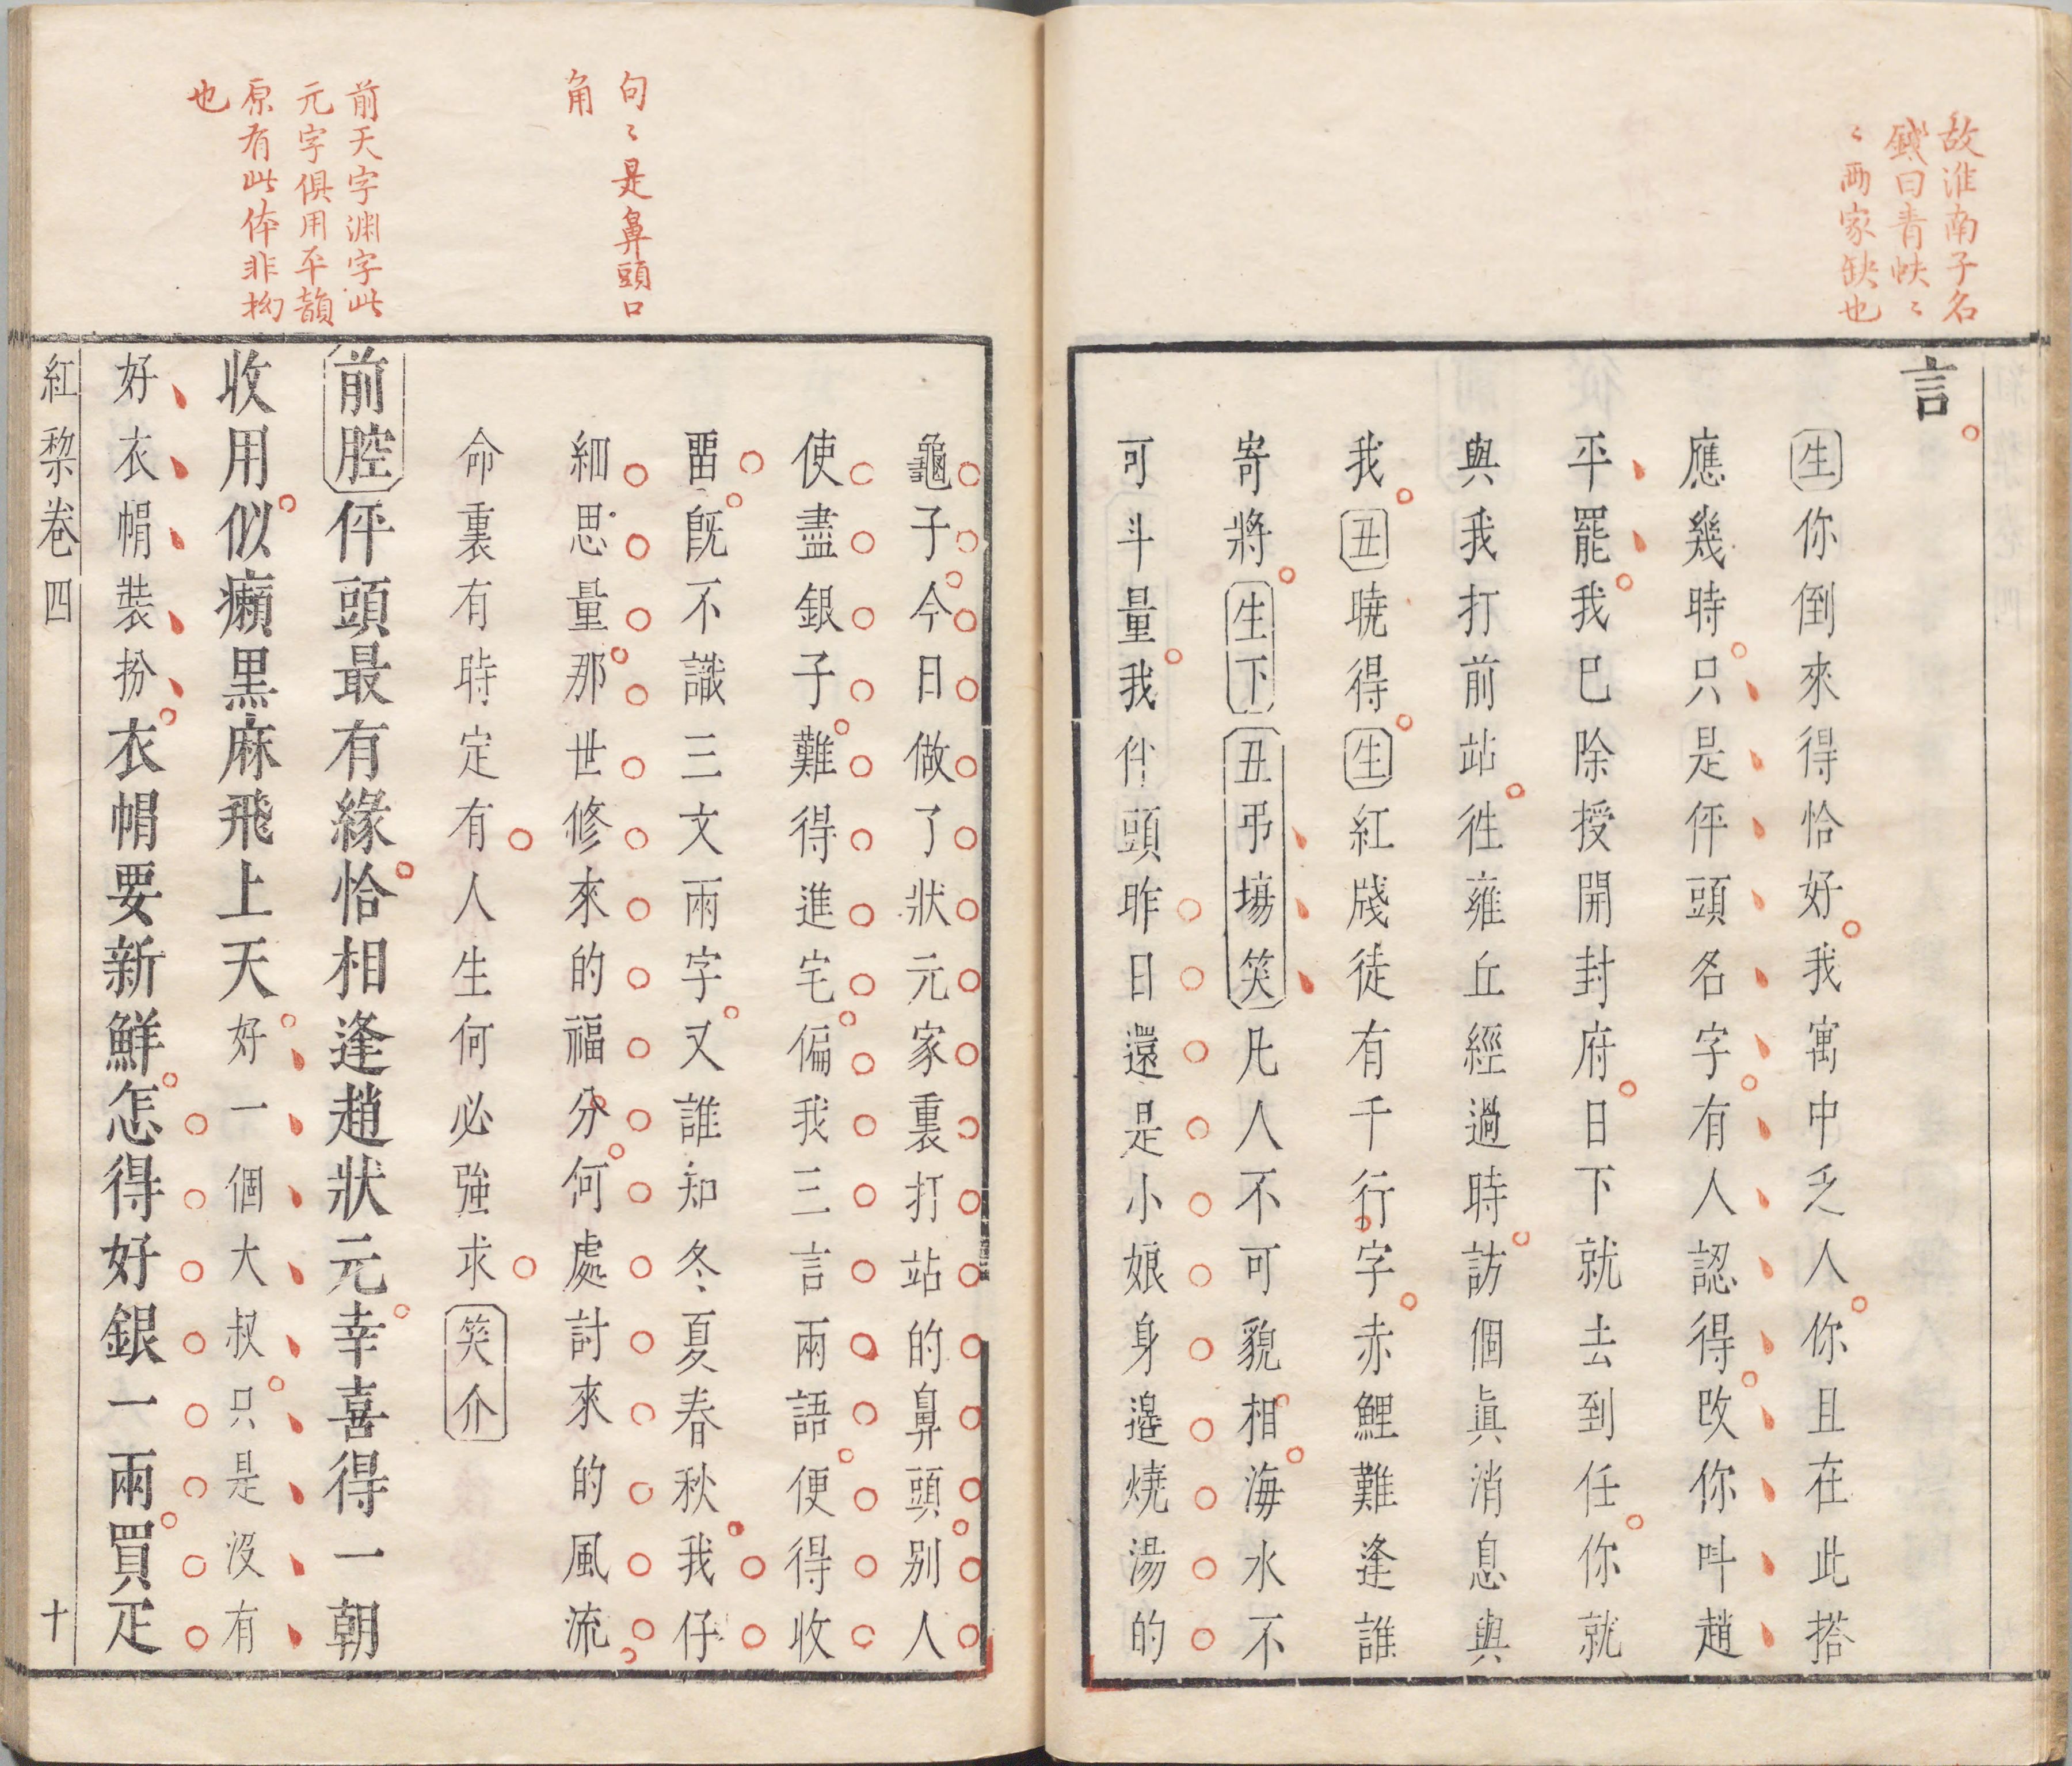 故淮南子名
錢曰青蚨〻
〻兩家缺也
言
生你倒來得恰好我寓中乏人你且在此搭
應幾時只是伻頭名字有人認得改你叫趙
平罷我已除授開封府日下就去到任你就
與我打前站徃雍丘經過時訪個眞消息與
我丑曉得生紅牋徒有千行字赤鯉難逢誰
寄將生下丑弔塲笑凡人不可貌相海水不
可斗量我伻頭昨日還是小娘身邉燒湯的
句〻是鼻頭口
角
前天字渊字此
元字俱用平韻
原有此体非拗
也
龜子今日做了狀元家裏打站的鼻頭别人
使盡銀子難得進宅偏我三言兩語便得收
畱既不識三文兩字又誰知冬夏春秋我仔
細思量那世修來的福分何處討來的風流
命裏有時定有人生何必強求笑介
前腔伻頭最有緣恰相逢趙狀元幸喜得一朝
收用似癩黒麻飛上天好一個大叔只是沒有
好衣帽裝扮衣帽要新鮮怎得好銀一兩買疋
紅棃卷四
十